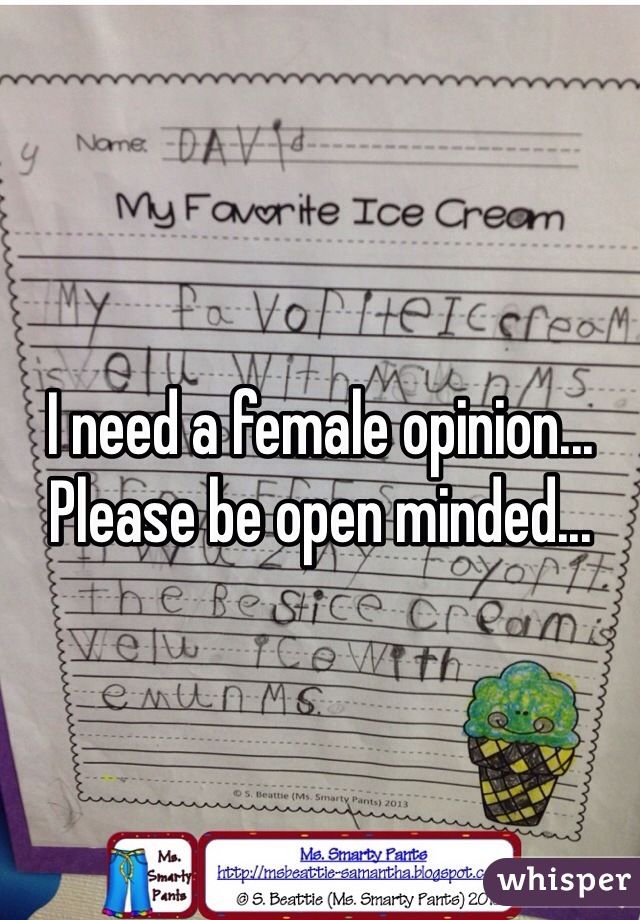 y Name: DAVid
My Favorite Ice Cream
My faVoriteICcream
is velu WithMunMS.
I need a female opinion...
Please be open minded...
the BesticE cream is
Velu iceWith
emunMS.
© S. Beattie (Ms. Smarty Pants) 2013
Ms. Smarty Pants
Ms. Smarty Pants
http://msbeattie-samantha.blogspot.c
© S. Beattie (Ms. Smarty Pants)
whisper